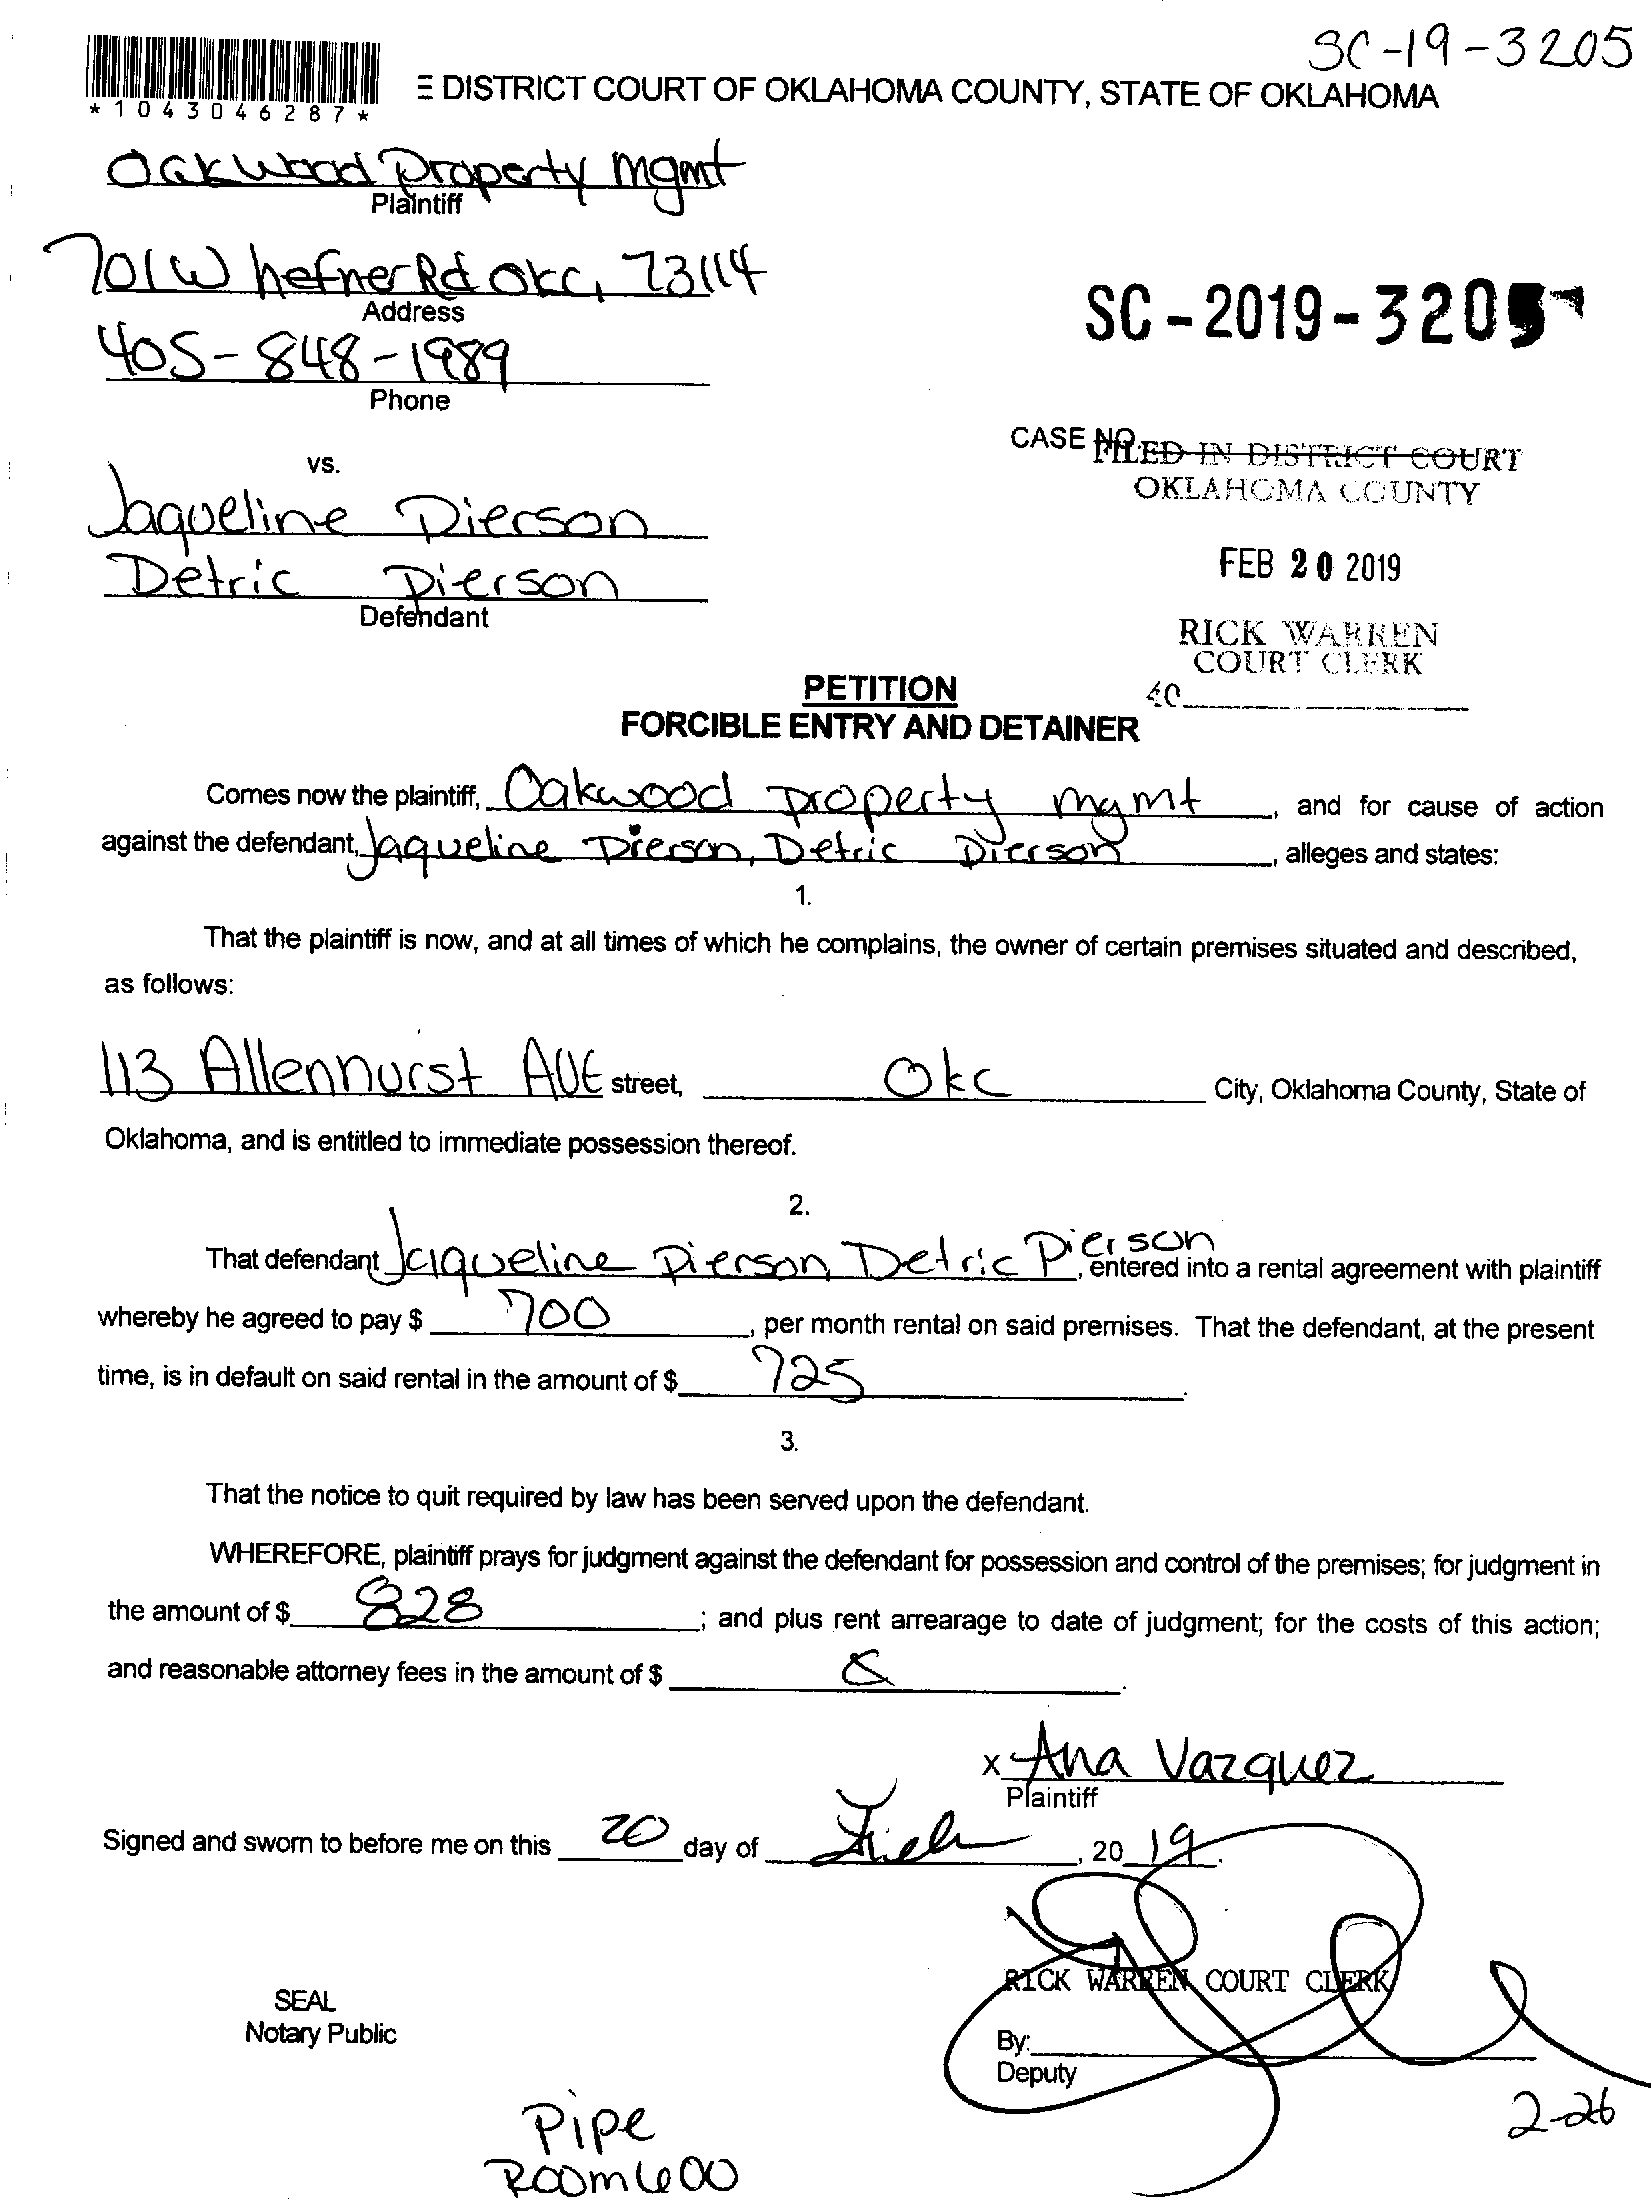 SC-19-3205
*1043046287*
E DISTRICT COURT OF OKLAHOMA COUNTY, STATE OF OKLAHOMA
Oakwood Property Mgmt
Plaintiff
701 W hefner Rd OKC, 73114
Address
SC-2019-3205
405-848-1989
Phone
CASE NO.
FILED IN DISTRICT COURT
OKLAHOMA COUNTY
vs.
Jaqueline Pierson
FEB 20 2019
Detric Pierson
Defendant
RICK WARREN
COURT CLERK
40
PETITION
FORCIBLE ENTRY AND DETAINER
Comes now the plaintiff, Oakwood property mgmt, and for cause of action
against the defendant, Jaqueline Pierson, Detric Pierson, alleges and states:
1.
That the plaintiff is now, and at all times of which he complains, the owner of certain premises situated and described,
as follows:
113 Allennurst AVE street, Okc City, Oklahoma County, State of
Oklahoma, and is entitled to immediate possession thereof.
2.
That defendant Jaqueline Pierson, Detric Pierson, entered into a rental agreement with plaintiff
whereby he agreed to pay $ 700, per month rental on said premises. That the defendant, at the present
time, is in default on said rental in the amount of $ 725.
3.
That the notice to quit required by law has been served upon the defendant.
WHEREFORE, plaintiff prays for judgment against the defendant for possession and control of the premises; for judgment in
the amount of $ 828; and plus rent arrearage to date of judgment; for the costs of this action;
and reasonable attorney fees in the amount of $
x Ana Vazquez
Plaintiff
Signed and sworn to before me on this 20 day of Feb, 2019.
RICK WARREN COURT CLERK
SEAL
Notary Public
By:
Deputy
2-26
Pipe
Room 600